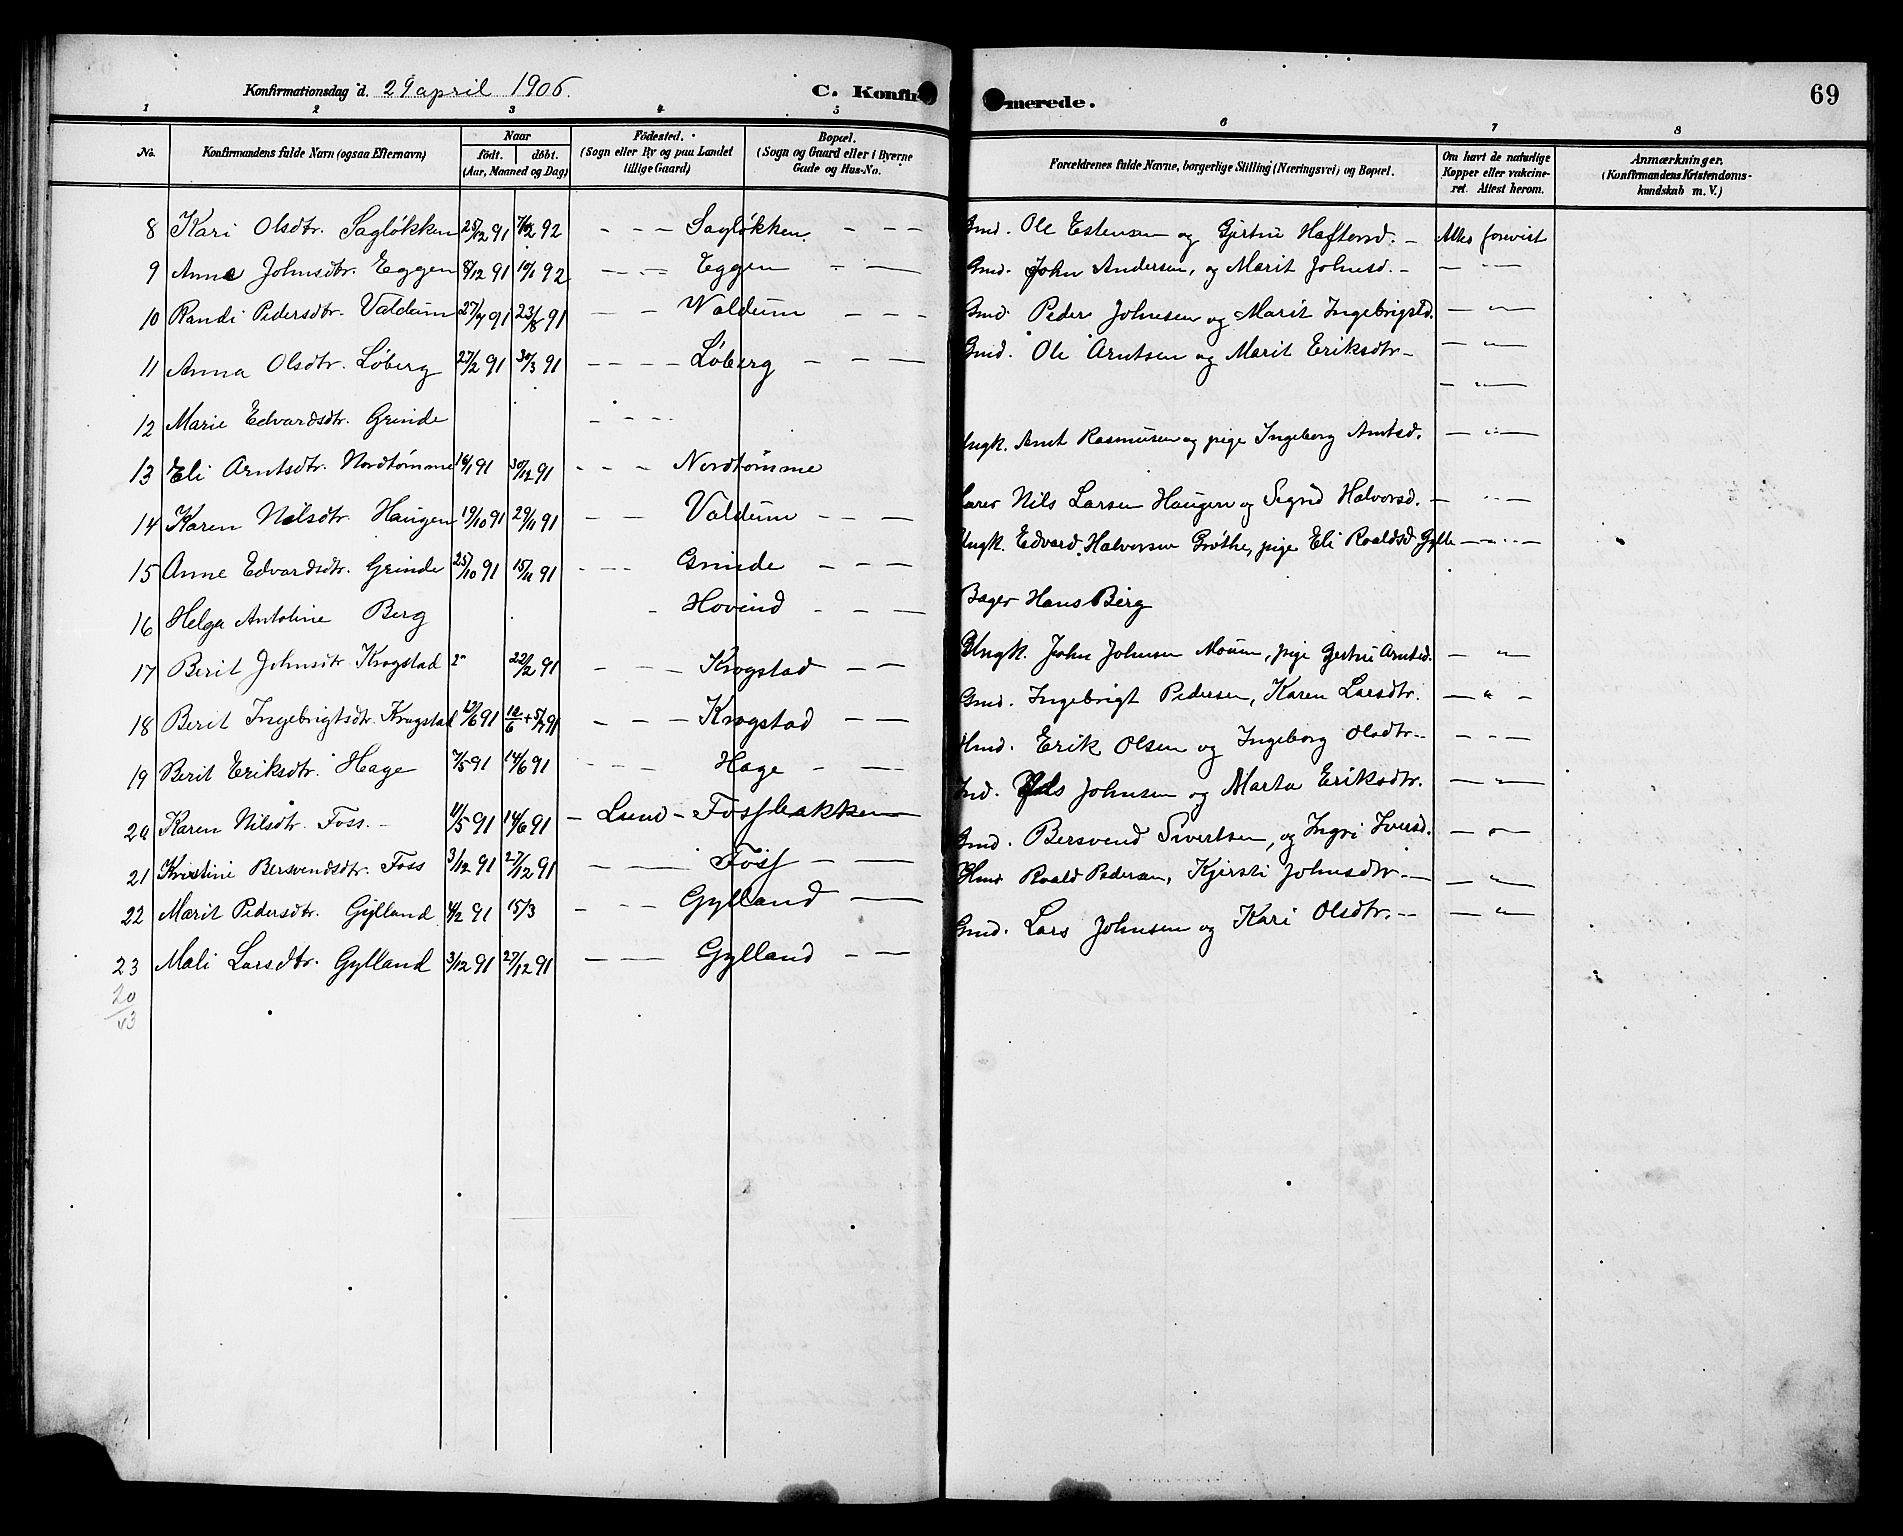 Konfirmationsdag d. 29 april 1906.
C. Konfirmerede.
69
1 2 3 4 5 6 7 8
No. Konfirmandens fulde Navn (ogsaa Efternavn) Naar födt. döbt. (Aar, Maaned og Dag) Födested. (Sogn eller By og paa Landet tillige Gaard) Bopæl. (Sogn og Gaard eller i Byerne Gade og Hus-No. Forældrenes fulde Navne, borgerlige Stilling (Næringsvei) og Bopæl. Om havt de naturlige Kopper eller vakcineret. Attest herom. Anmærkninger. (Konfirmandens Kristendomskundskab m. V.)
8 Kari Olsdtr. Sagløkken 25/12 91 92 - - - Sagløkken - - - Gmd. Ole Estensen og Gjertru Haftorsd. - Attes forevist
9 Anne Johnsdtr. Eggen 8/12 91 10/1 92 - - - Eggen - - Gmd. John Andersen, og Marit Johnsd. - - " -
10 Randi Pedersdtr. Valdum 27/7 91 23/8 91 - - Valdum - - - Gmd. Peder Johnsen og Marit Ingebrigtsd. - " -
11 Anna Olsdtr. Løberg 27/2 91 30/3 91 - - - - Løberg - - - Gmd. Ole Arntsen og Marit Eriksdtr - - " -
12 Marie Edvardsdtr. Grinde - - - - - " -
13 Eli Arntsdtr. Nordtømme 91 30/12 91 - - - Nordtømme Ungk. Arnt Rasmusen og pige Ingeborg Arntsd. - " -
14 Karen Nilsdtr. Haugen 19/10 91 29/11 91 - - Valdum - - - Nils Larsen Haugen og Sigrid Halvorsd. - " -
15 Anne Edvardsdtr. Grinde 25/10 91 15/11 91 - - - Grinde - - - Ungk. Edvard Halvorsen Grøthe, pige Eli Roaldsd. - " -
16 Helga Antoline Berg - Hovind - - - Bager Hans Berg
17 Berit Johnsdtr Krogstad 22/2 91 - - - Krogstad - - Ungk. John Johnsen Mouen, pige Gertru Arntsd. - " -
18 Berit Ingebrigtsdtr. Krogstad 91 - - - Krogstad - - Gmd. Ingebrigt Pedersen, Karen Larsdtr. - " -
19 Berit Eriksdtr. Hage 7/5 91 14/6 91 - - - Hage - - Hmd. Erik Olsen og Ingeborg Olsdtr. - - " -
20 Karen Nilsdtr. Foss. - 11/5 91 14/6 91 - Lund - Fossbakken Ind. Johnsen og Marta Eriksdtr. - " -
21 Kristine Bersvendsdtr. Foss 3/12 91 27/12 91 - - Foss - - Gmd. Bersvend Sivertsen, og Ingri Iversd. - " -
22 Marit Pedersdtr. Gylland 91 15/3 - - - Gylland - Hmd Roald Pedersen, Kjersti Johnsdtr. - - " -
23 Mali Larsdtr. Gylland 3/12 91 27/12 91 - - Gylland - - Gmd. Lars Johnsen og Kari Olsdtr. - - - " -
20
43